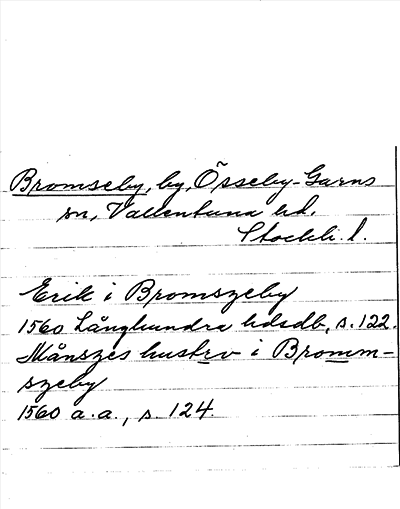 Bromseby, by, Össeby-Garns
sn, Vallentuna hd.
Stockh. l.
Erik i Bromszeby
1560 Långhundra hdsdb, s. 122.
Månszes hustrv i Bromm-
szeby
1560 a.a., s. 124.